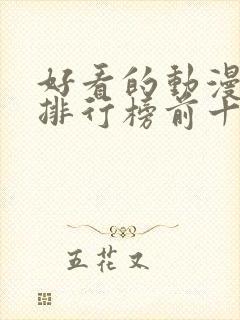 好看的動漫
排行榜前十
五花又